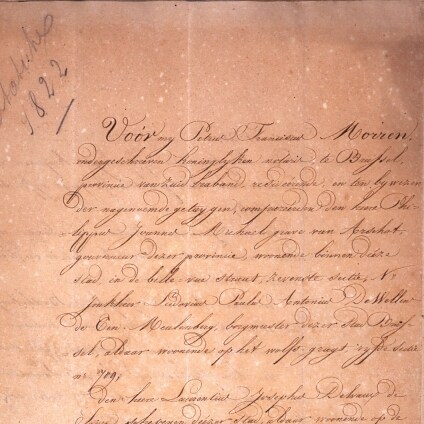 1822
Vóór my Petrus Franciscus Morren,
ondergeschreven koninglyken notaris te Brussel,
provincie van Zuid braband, residerende, en ten bywezen
der nagenoemde getuygen, compareerden den heere Phi-
lippus Joannes Michael grave van Arschot,
gouverneur dezer provincie, woonende binnen deze
stad in de belle vue straat, zevenste sectie, N.
Jonkheer Ludovicus Paulus Antonius De Wellens
de Ten Meulenberg, borgmeester dezer stad Brus-
sel, aldaar woonende op het wolfs-gragt, sectie
nr 709,
Den heere Laurentius Josephus Delvaux de
schepenen dezer stad, aldaar woonende op de